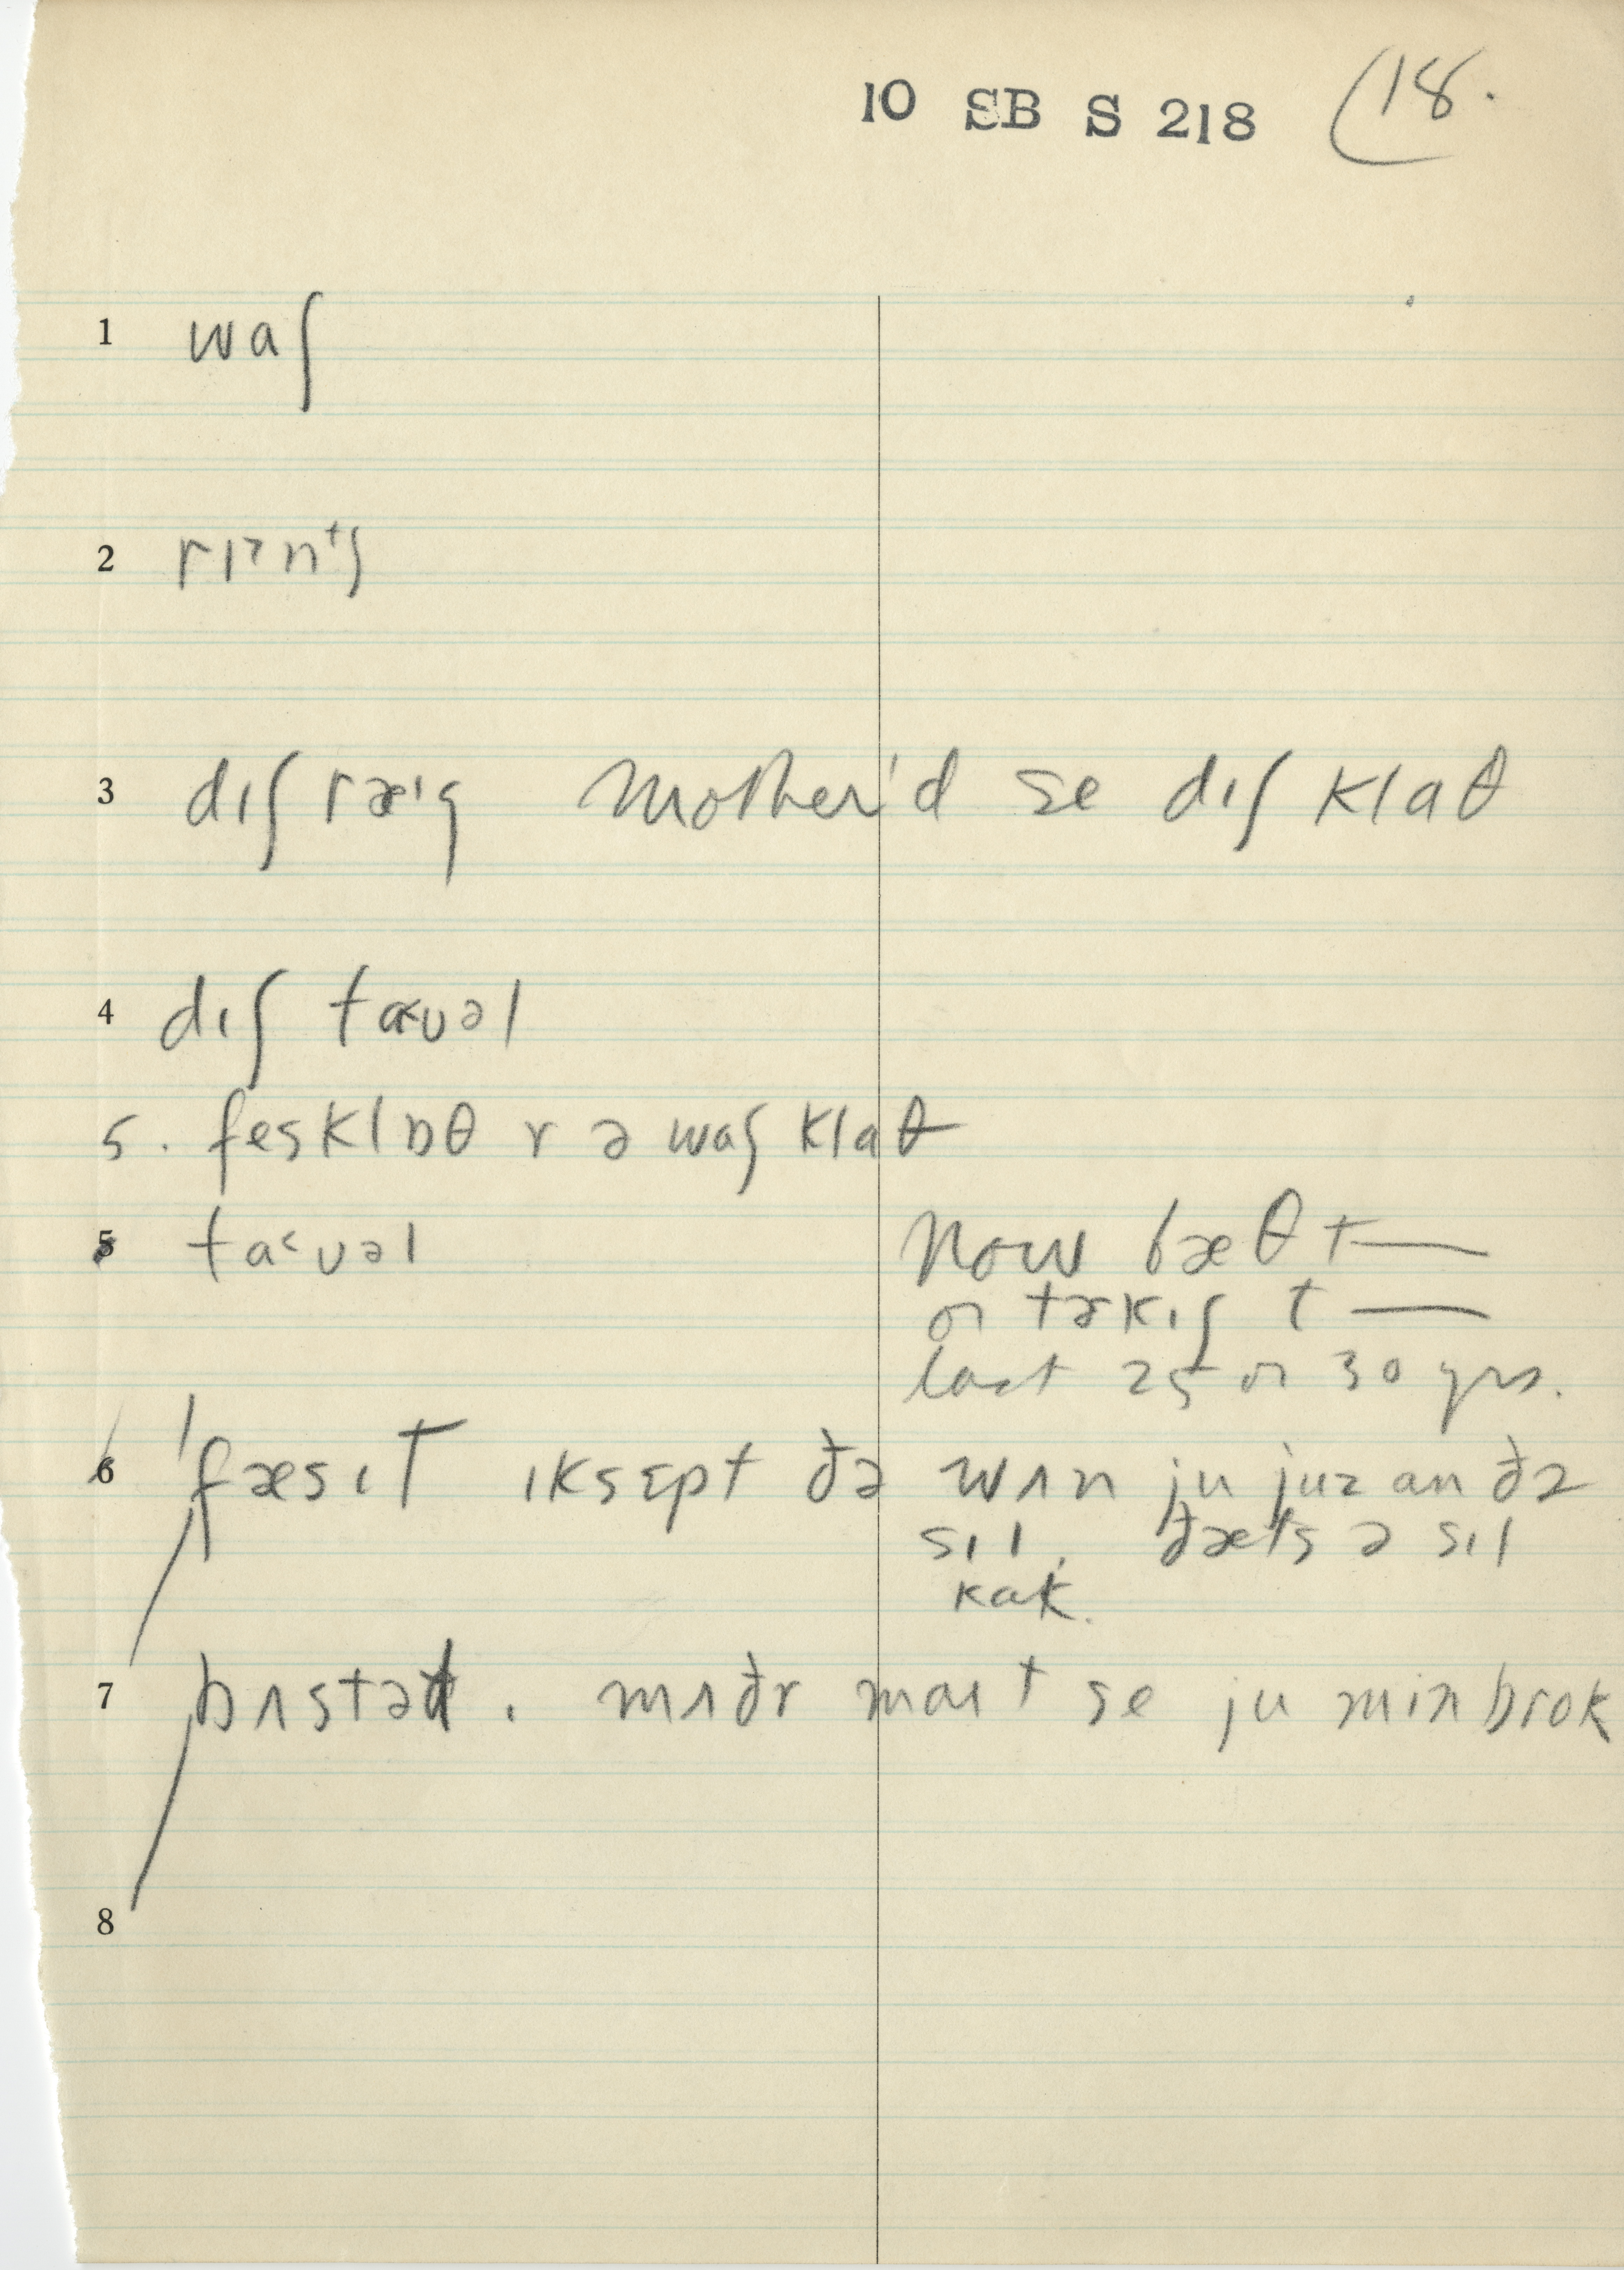 10 SB S 218 (18.
1 waʃ
2 rɪᵊnᵗʃ
3 dɪʃ ræᶦg Mother'd se dɪʃ klaθ
4 dɪʃ tɑ˂ʊəl
5. feskl ɒθ r ə waʃ klaθ
5 ta˂ʊəl Now bæθ t—
or tɜkɪʃ t—
last 25 or 30 yrs.
6 fæsɪt ɪksɛpt ðə wʌn ju juz an ðə
sɪl, ðæts ə sɪl
kak.
7 bʌstəd. mʌðr maɪt se ju min brok
8